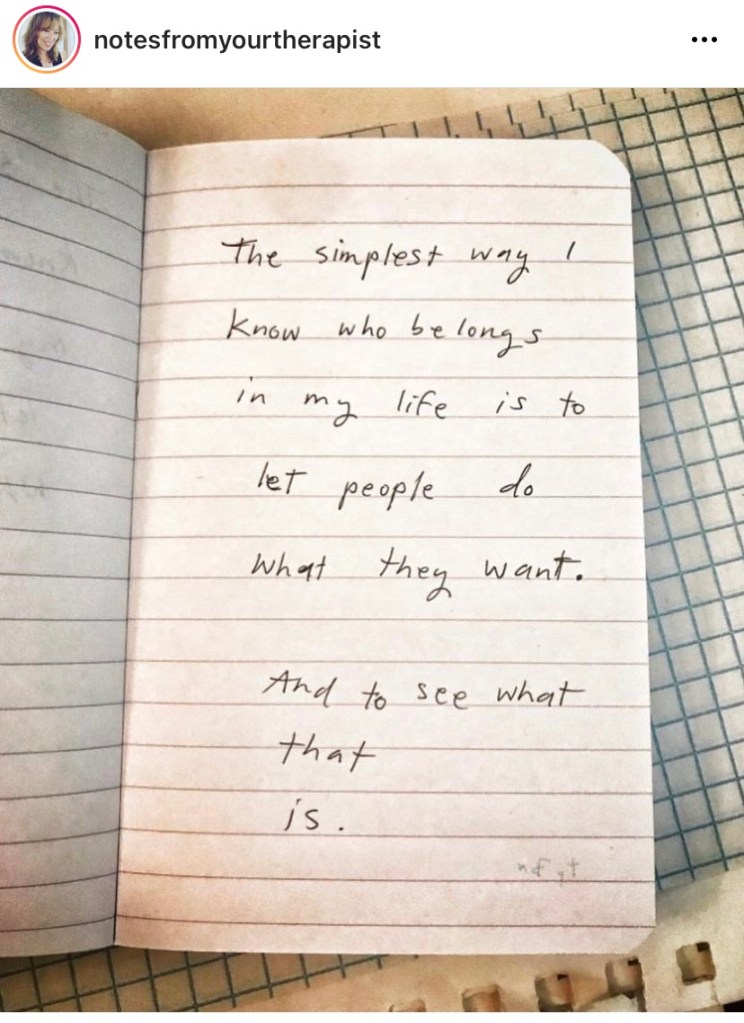 notesfromyourtherapist
The simplest way I
know who belongs
in my life is to
let people do
what they want.
And to see what
that
is.
nfyt